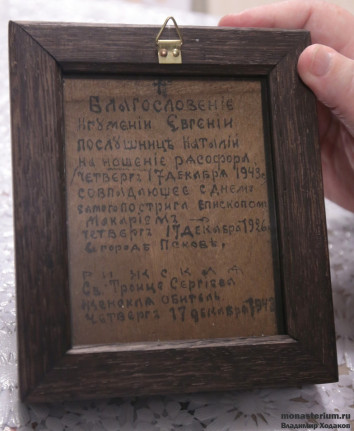 Благословеніе
Игуменіи Евгеніи
послушницѣ Наталіи
на ношеніе рясофора
четверг 17 декабря 1943
совпадающее с днем
самого пострига Епископом
Макаріем
четверг 17 декабря 1926
в городѣ Псковѣ,
Рижская
Св. Троице Сергіева
женская обитель
четверг 17 декабря 1943
monasterium.ru
Владимир Ходаков